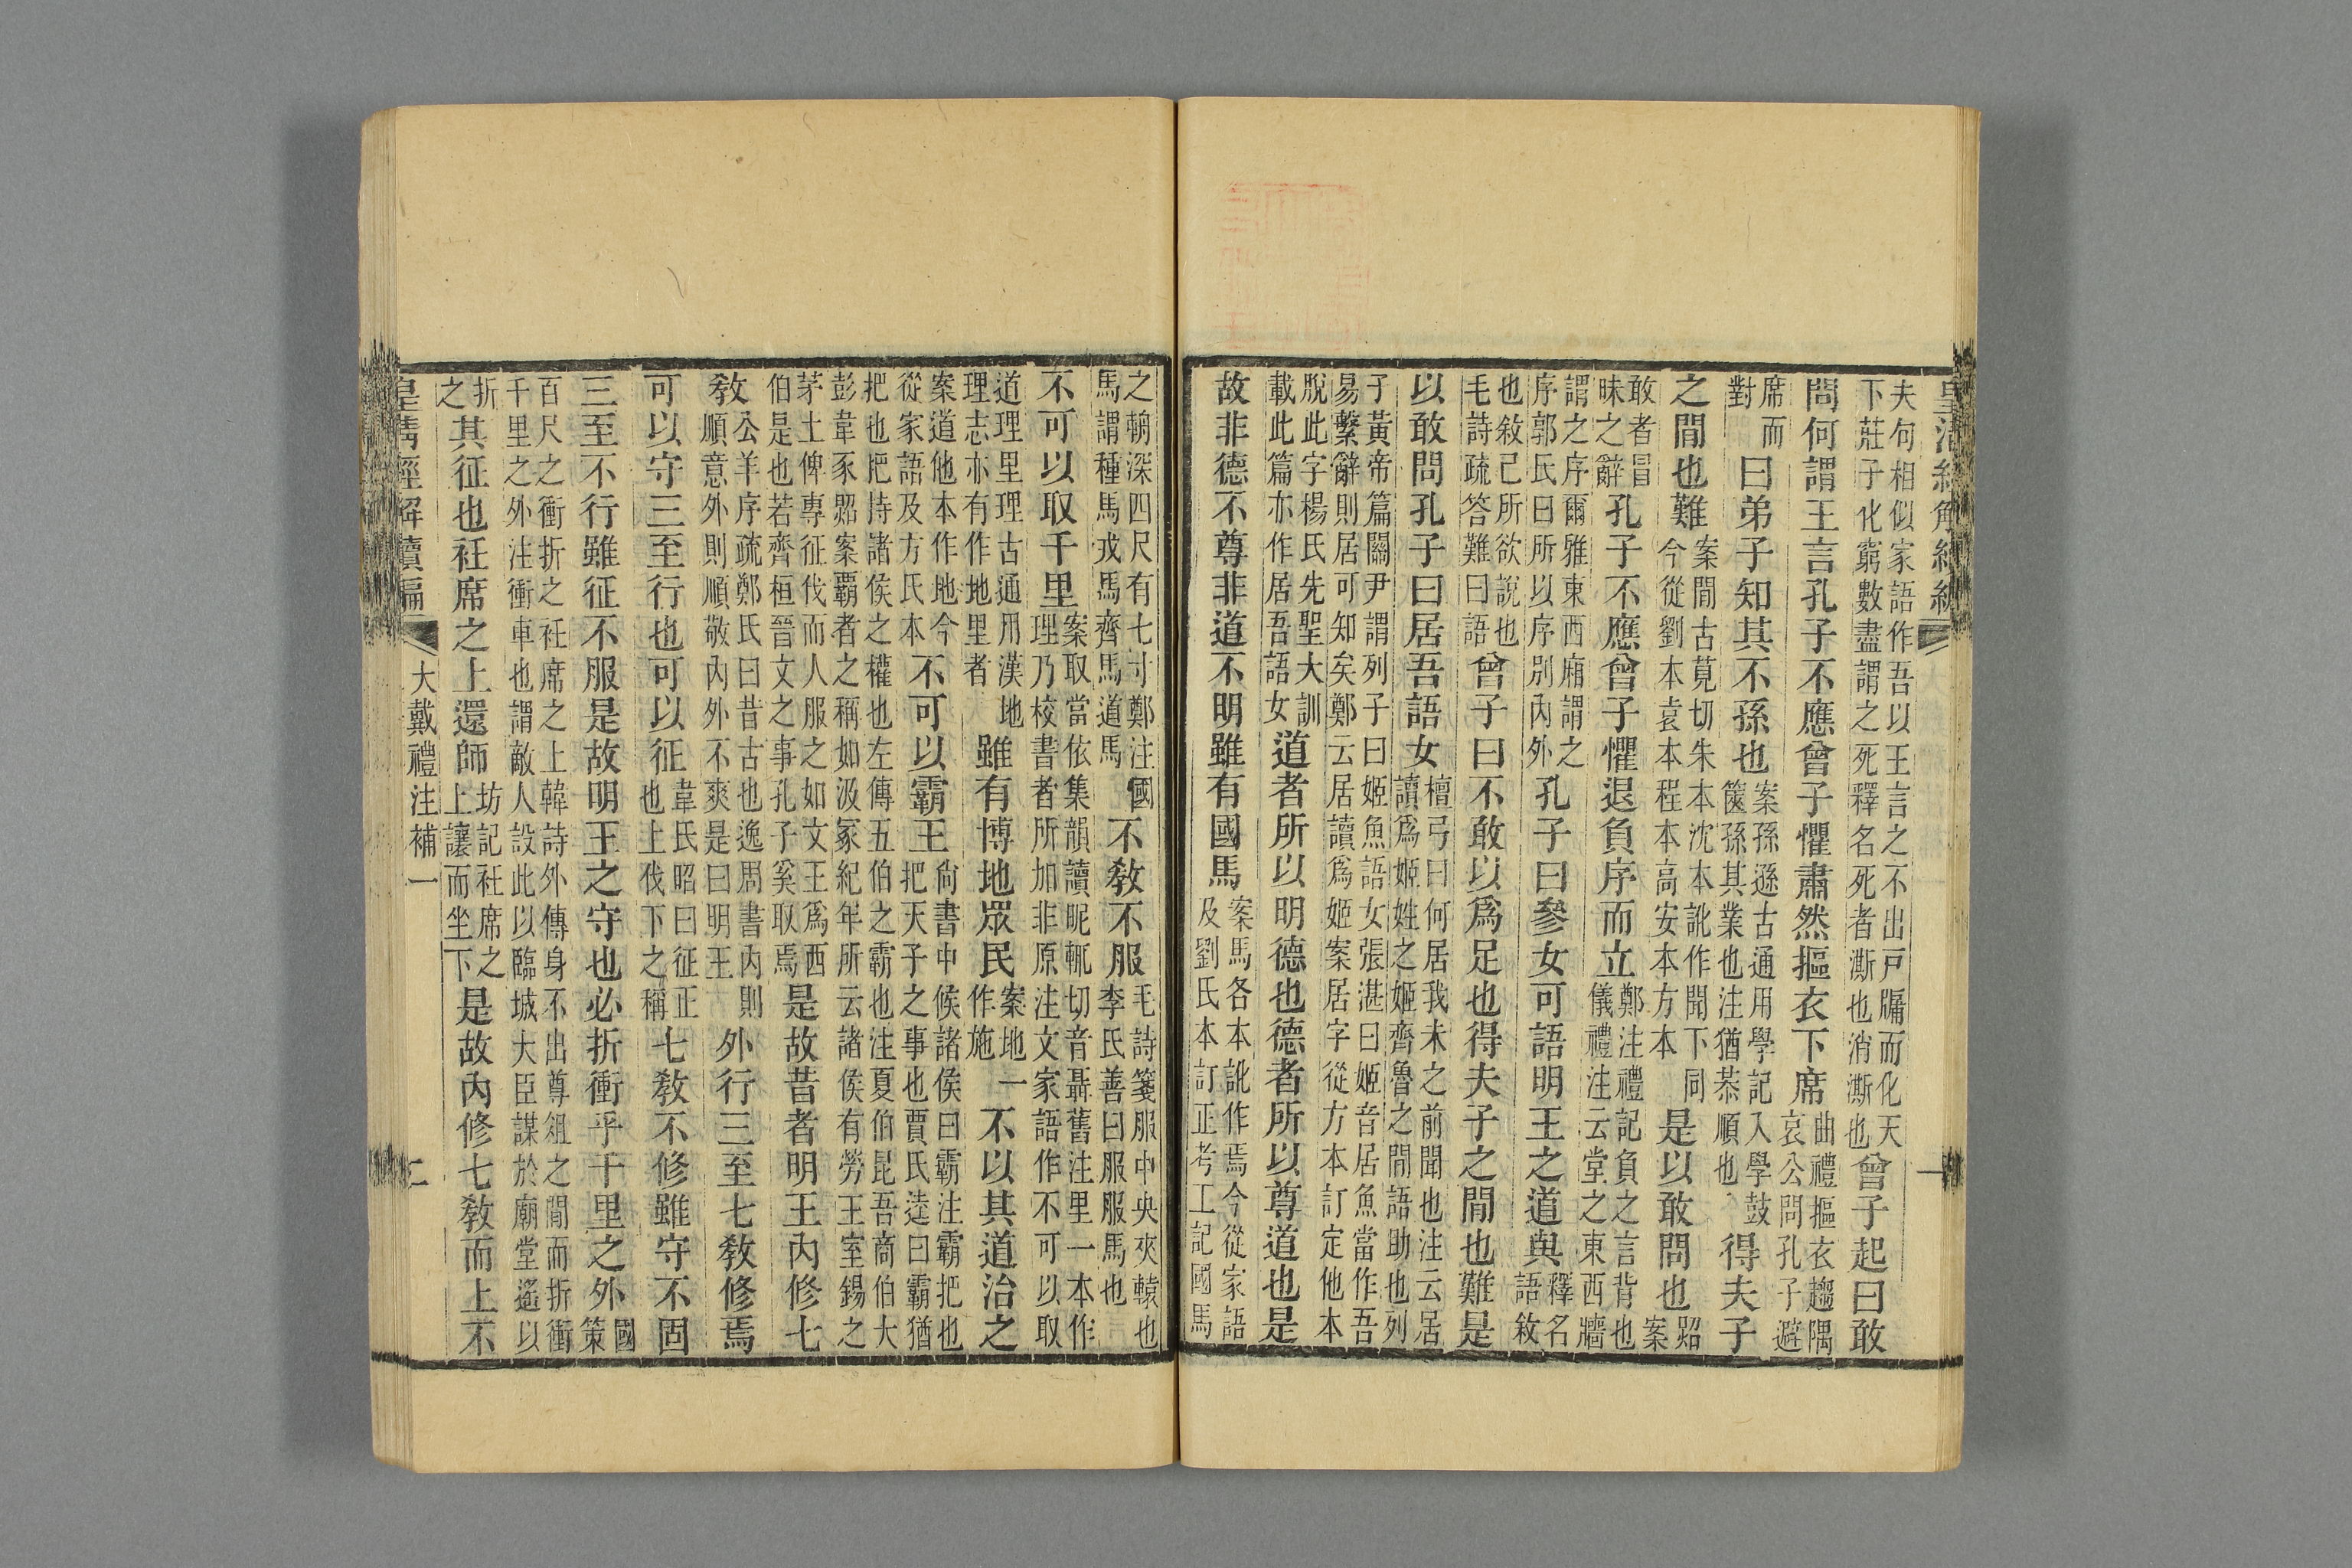 皇清經解續編 一
夫何相似家語作吾以王言之不出戸牖而化天
下莊子化窮數盡謂之死釋名死者澌也消澌也
曾子起曰敢
問何謂王言孔子不應曾子懼肅然摳衣下席
曲禮摳衣趨隅
哀公問孔子避
席而
對
曰弟子知其不孫也
案孫遜古通用學記入學鼓
篋孫其業也注猶恭順也
得夫子
之閒也難
案閒古莧切朱本沈本訛作聞下同
今從劉本袁本程本高安本方本
是以敢問也
跽
案
敢者冒
昧之辭
孔子不應曾子懼退負序而立
鄭注禮記負之言背也
儀禮注云堂之東西牆
謂之序爾雅東西廂謂之
序郭氏曰所以序別內外
孔子曰參女可語明王之道與
釋名
語敘
也敘己所欲說也
毛詩疏答難曰語
曾子曰不敢以爲足也得夫子之閒也難是
以敢問孔子曰居吾語女
檀弓曰何居我未之前聞也注云居
讀爲姬姓之姬齊魯之閒語助也列
子黃帝篇關尹謂列子曰姬魚語女張湛曰姬音居魚當作吾
易繫辭則居可知矣鄭云居讀爲姬案居字從方本訂定他本
脫此字楊氏先聖大訓
載此篇亦作居吾語女
道者所以明德也德者所以尊道也是
故非德不尊非道不明雖有國馬
案馬各本訛作焉今從家語
及劉氏本訂正考工記國馬
之輈深四尺有七寸鄭注國
馬謂種馬戎馬齊馬道馬
不敎不服
毛詩箋服中央夾轅也
李氏善曰服服馬也
不可以取千里
案取當依集韻讀昵輒切音聶舊注里一本作
理乃校書者所加非原注文家語作不可以取
道理里理古通用漢地
理志亦有作地里者
雖有博地眾民
案地一
作施
不以其道治之
案道他本作地今
從家語及方氏本
不可以霸王
尙書中候諸侯曰霸注霸把也
把天子之事也賈氏逵曰霸猶
把也把持諸侯之權也左傳五伯之霸也注夏伯昆吾商伯大
彭韋豕郹案霸者之稱如汲冢紀年所云諸侯有勞王室錫之
茅土俾專征伐而人服之如文王爲西
伯是也若齊桓晉文之事孔子奚取焉
是故昔者明王內修七
敎
公羊序疏鄭氏曰昔古也逸周書內則
順意外則順敬內外不爽是曰明王
外行三至七敎修焉
可以守三至行也可以征
韋氏昭曰征正
也上伐下之稱
七敎不修雖守不固
三至不行雖征不服是故明王之守也必折衝乎千里之外
國
策
百尺之衝折之衽席之上韓詩外傳身不出尊俎之閒而折衝
千里之外注衝車也謂敵人設此以臨城大臣謀於廟堂遙以
折
之
其征也衽席之上還師
坊記衽席之
上讓而坐下
是故內修七敎而上不
皇清經解續編 大戴禮注補一 二